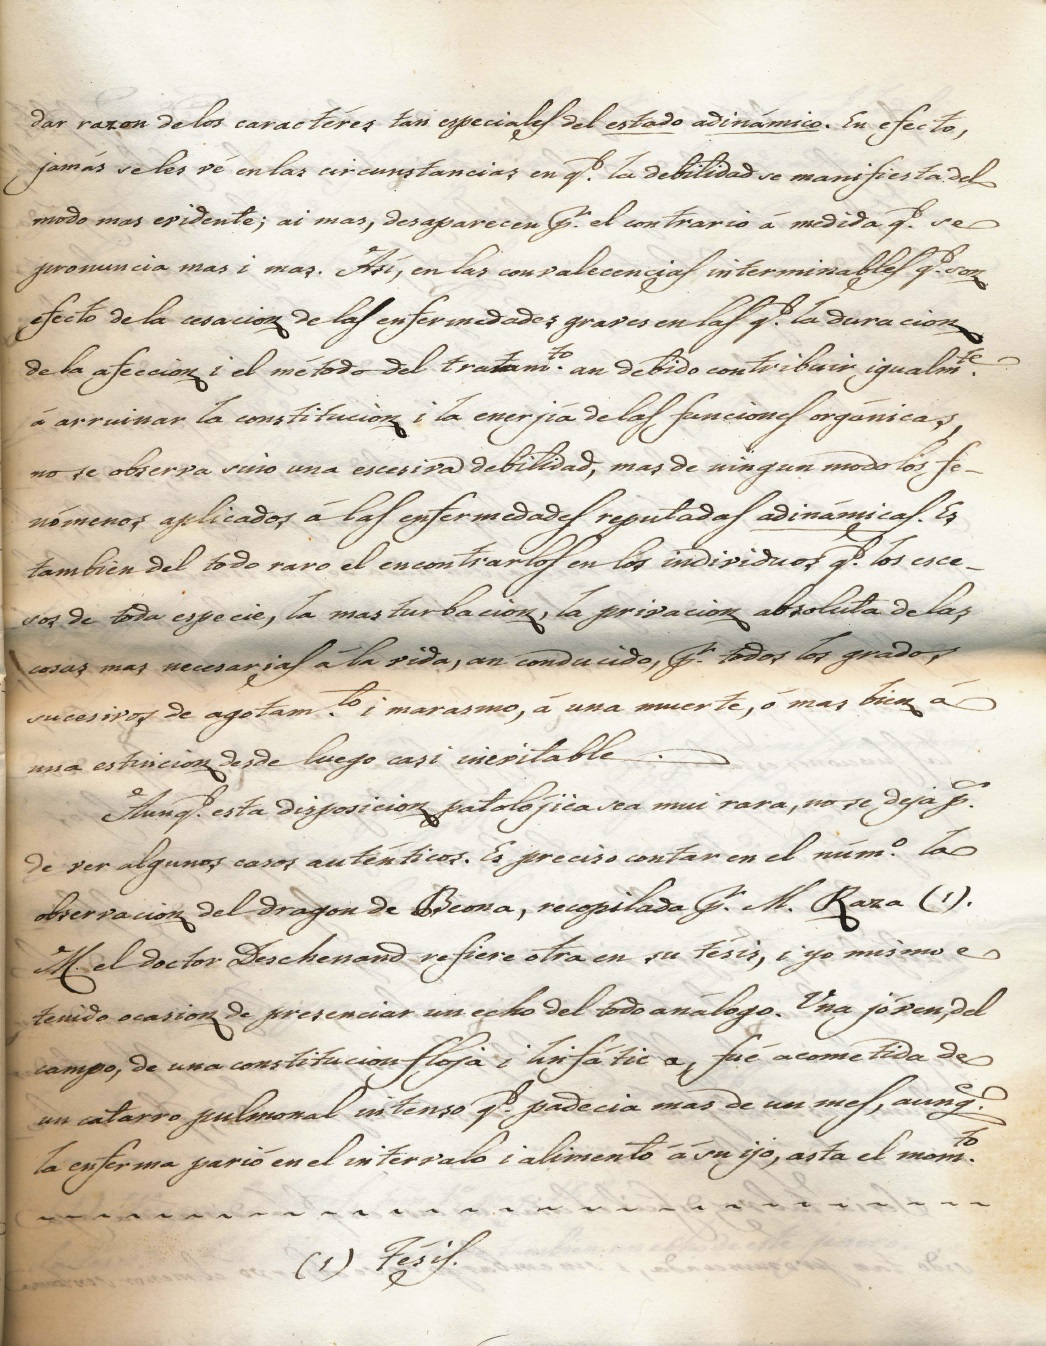 dar razon de los caractéres tan especiales del estado adinámico. En efecto,
jamás se les vé en las circunstancias en q.e la debilidad se manifiesta del
modo mas evidente; ai mas, desaparecen p.r el contrario á medida q.e se
pronuncia mas i mas. Así, en las convalecencias interminables q.e son
efecto de la cesacion de las enfermedades graves en las q.e la duracion
de la afeccion i el método del tratam.to an debido contribuir igualm.te
á arruinar la constitucion i la enerjía de las funciones orgánicas,
no se observa sino una escesiva debilidad, mas de ningun modo los fe-
nómenos aplicados á las enfermedades reputadas adinámicas. Es
tambien del todo raro el encontrarlos en los individuos q.e los esce-
sos de toda especie, la masturbacion, la privacion absoluta de las
cosas mas necesarias á la vida, an conducido, p.r todos los grados
sucesivos de agotam.to i marasmo, á una muerte, ó mas bien á
una estincion desde luego casi inevitable.
Aunq.e esta disposicion patolójica sea mui rara, no se deja p.r
de ver algunos casos auténticos. Es preciso contar en el núm.o la
observacion del dragon de Beona, recopilada p.r M. Raza (1).
M. el doctor Deschenand refiere otra en su tésis, i yo mismo e
tenido ocasion de presenciar un echo del todo análogo. Una jóven, del
campo, de una constitucion floja i linfática, fué acometida de
un catarro pulmonal intenso q.e padecia mas de un mes, aunq.e
la enferma parió en el intervalo i alimentó á su ijo, asta el mom.to
(1) Tésis.